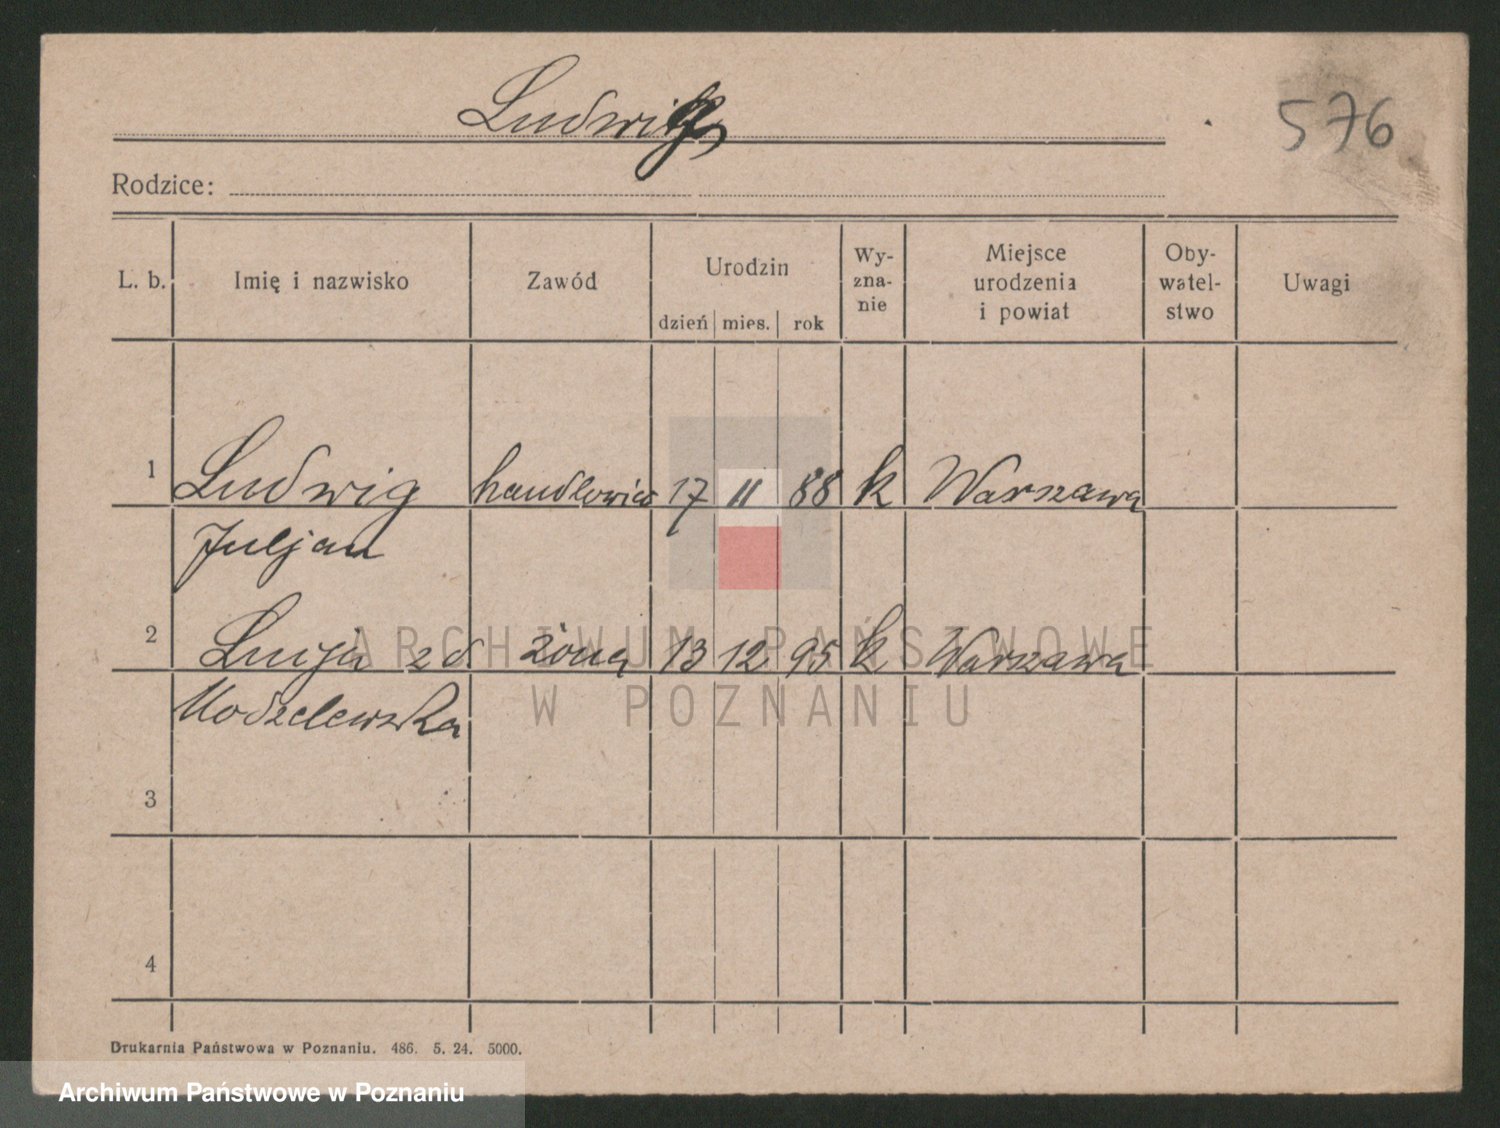 Ludwig
576
Rodzice:
L. b. Imię i nazwisko Zawód Urodzin dzień mies. rok Wy-zna-nie Miejsce urodzenia i powiat Oby-watel-stwo Uwagi
1 Ludwig handlowiec 17 11 88 k Warszawa
Juljan
2 żona 13 12 95 k Warszawa
Modzelewska
3
4
Drukarnia Państwowa w Poznaniu. 486. 5. 24. 5000.
ARCHIWUM PAŃSTWOWE
W POZNANIU
Archiwum Państwowe w Poznaniu